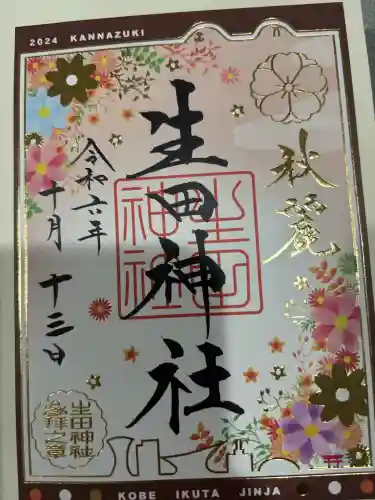 2024 KANNAZUKI
秋麗
生田神社
令和六年
十月 十三日
生田神社
参拝之章
KOBE IKUTA JINJA